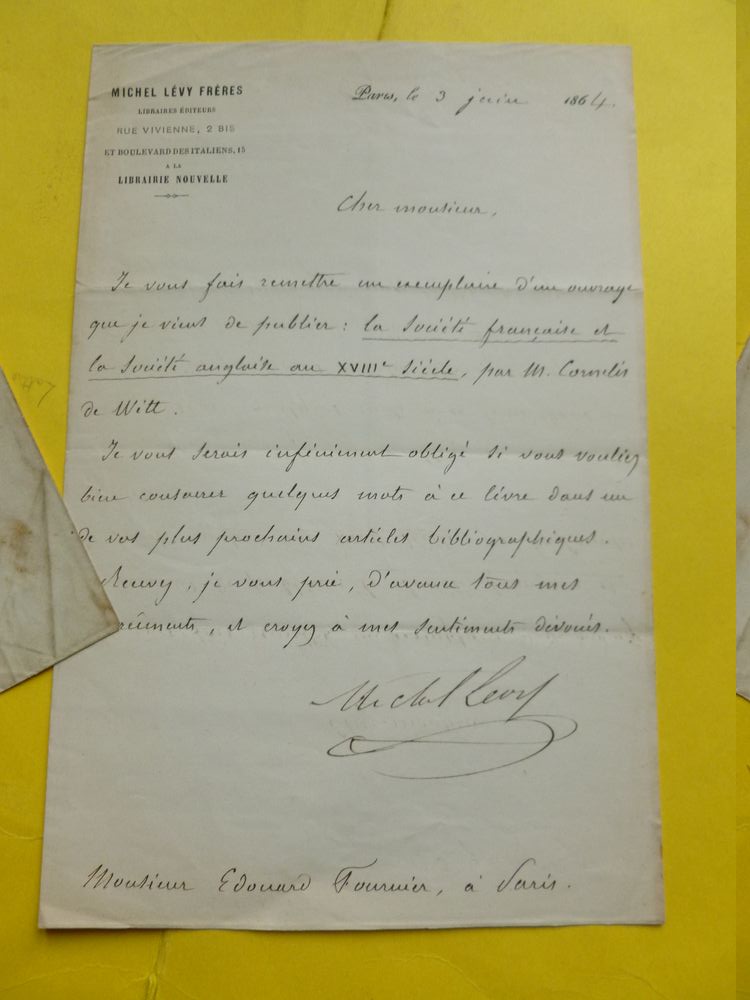 MICHEL LÉVY FRÈRES
LIBRAIRES ÉDITEURS
RUE VIVIENNE, 2 BIS
ET BOULEVARD DES ITALIENS, 15
A LA
LIBRAIRIE NOUVELLE
Paris, le 3 juin 1864.
Cher monsieur,
Je vous fais remettre un exemplaire d'un ouvrage
que je viens de publier : la Société française et
la Société anglaise au XVIIIe Siècle, par M. Cornelis
de Witt.
Je vous serais infiniment obligé si vous vouliez
bien consacrer quelques mots à ce livre dans un
de vos plus prochains articles bibliographiques.
Recevez, je vous prie, d'avance tous mes
, et croyez à mes sentiments dévoués.
Michel Lévy
Monsieur Edouard Fournier, à Paris.